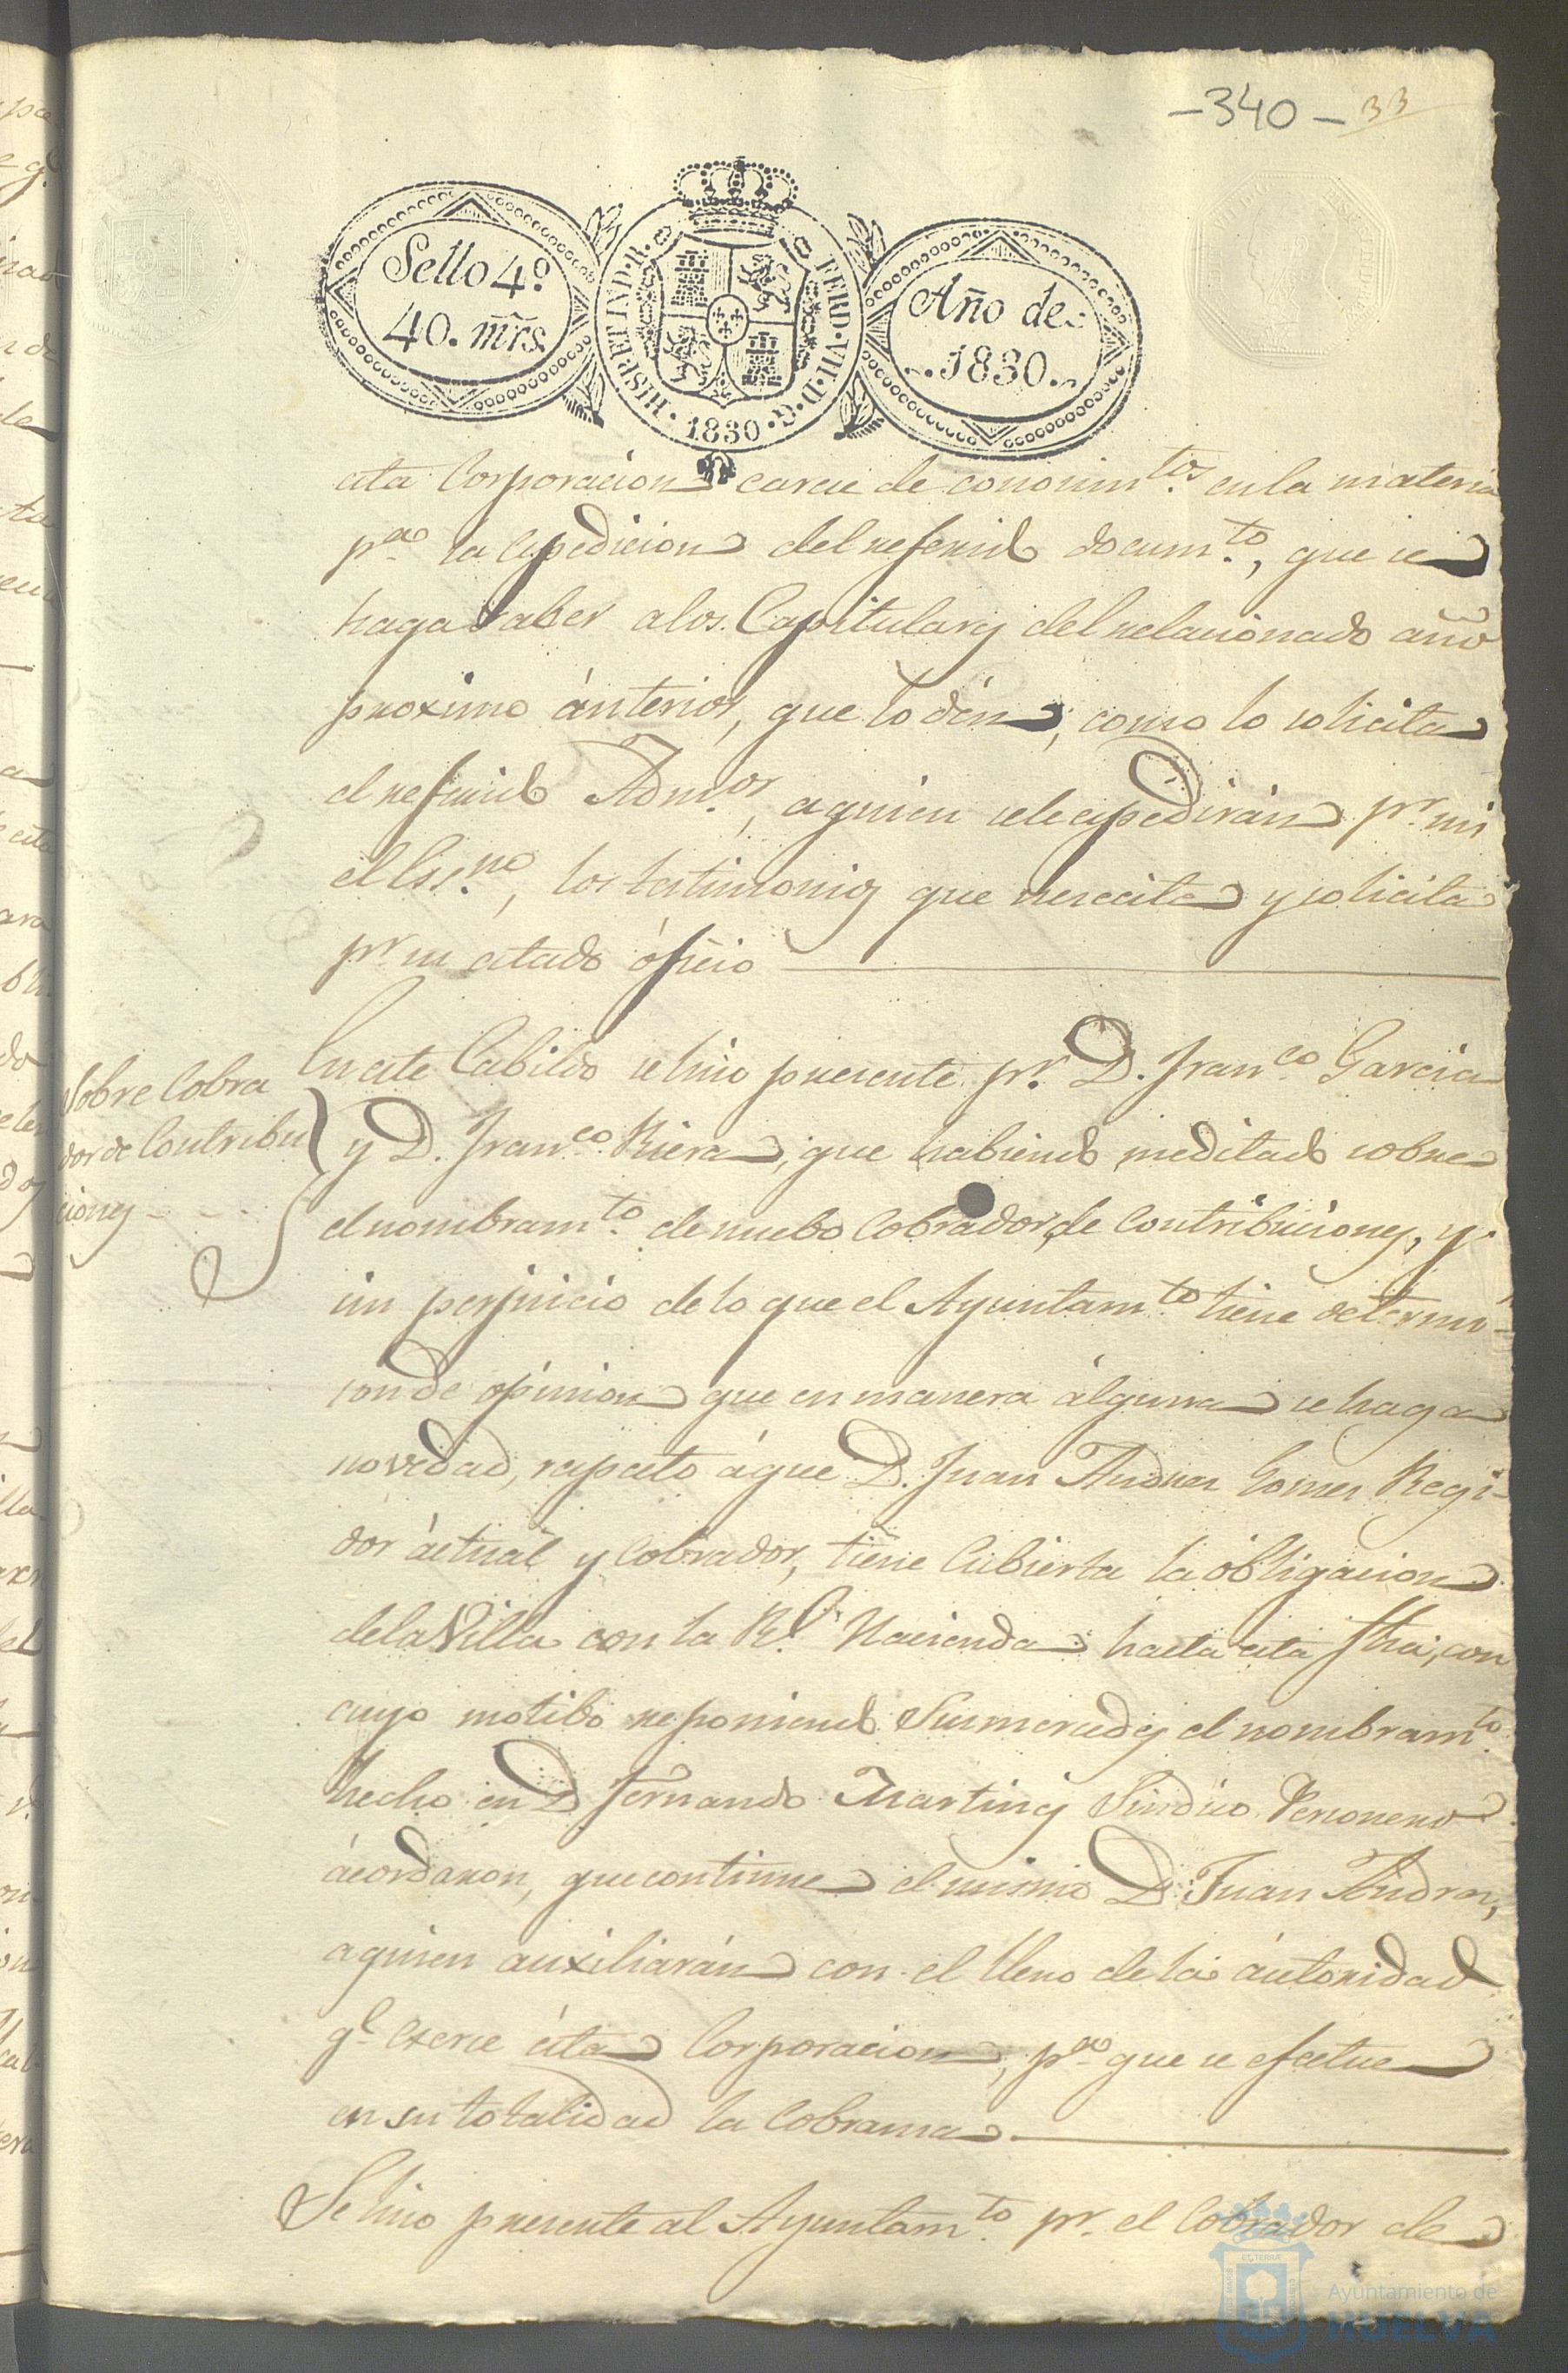 -340- 33
Sello 4º
40. mrs.
HISP. ET IND. R. FERD. VII. D. G. 1830
Año de
1830.
esta Corporacion carece de conocimtos. en la materia
pª la espedicion del referido documto., que se
haga saber a los Capitulares del relacionado año
proximo ánterior, que lo dén, como lo solicita
el referido Admor., a quien se le espedirán pr. mi
el Essno., los testimonios que nececita y solicita
pr. su citado óficio
Sobre Cobra
dor de Contribu
ciones
En este Cabildo se hizo presente pr. D. Franco. Garcia
y D. Franco. Riera, que habiendo meditado sobre
el nombramto. de nuebo Cobrador de Contribuciones, y
sin perjuicio de lo que el Ayuntamto. tiene determi-
son de opinion que en manera álguna se haga
novedad, respecto á que D. Juan Andres Gomez Regi-
dor áctual y Cobrador, tiene Cubierta la óbligacion
de la Villa con la Rl. Hacienda hasta esta fha, con
cuyo motibo reponiendo Sus mercedes el nombramto.
hecho en D Fernando Martines Sindico Personero
ácordaron, que continue el mismo D. Juan Andres,
a quien auxiliarán con el lleno de la áutoridad
qe. exerce ésta Corporacion, pª que se efectue
en su totalidad la Cobranza
Se hizo presente al Ayuntamto. pr. el Cobrador de
Ayuntamiento de
HUELVA